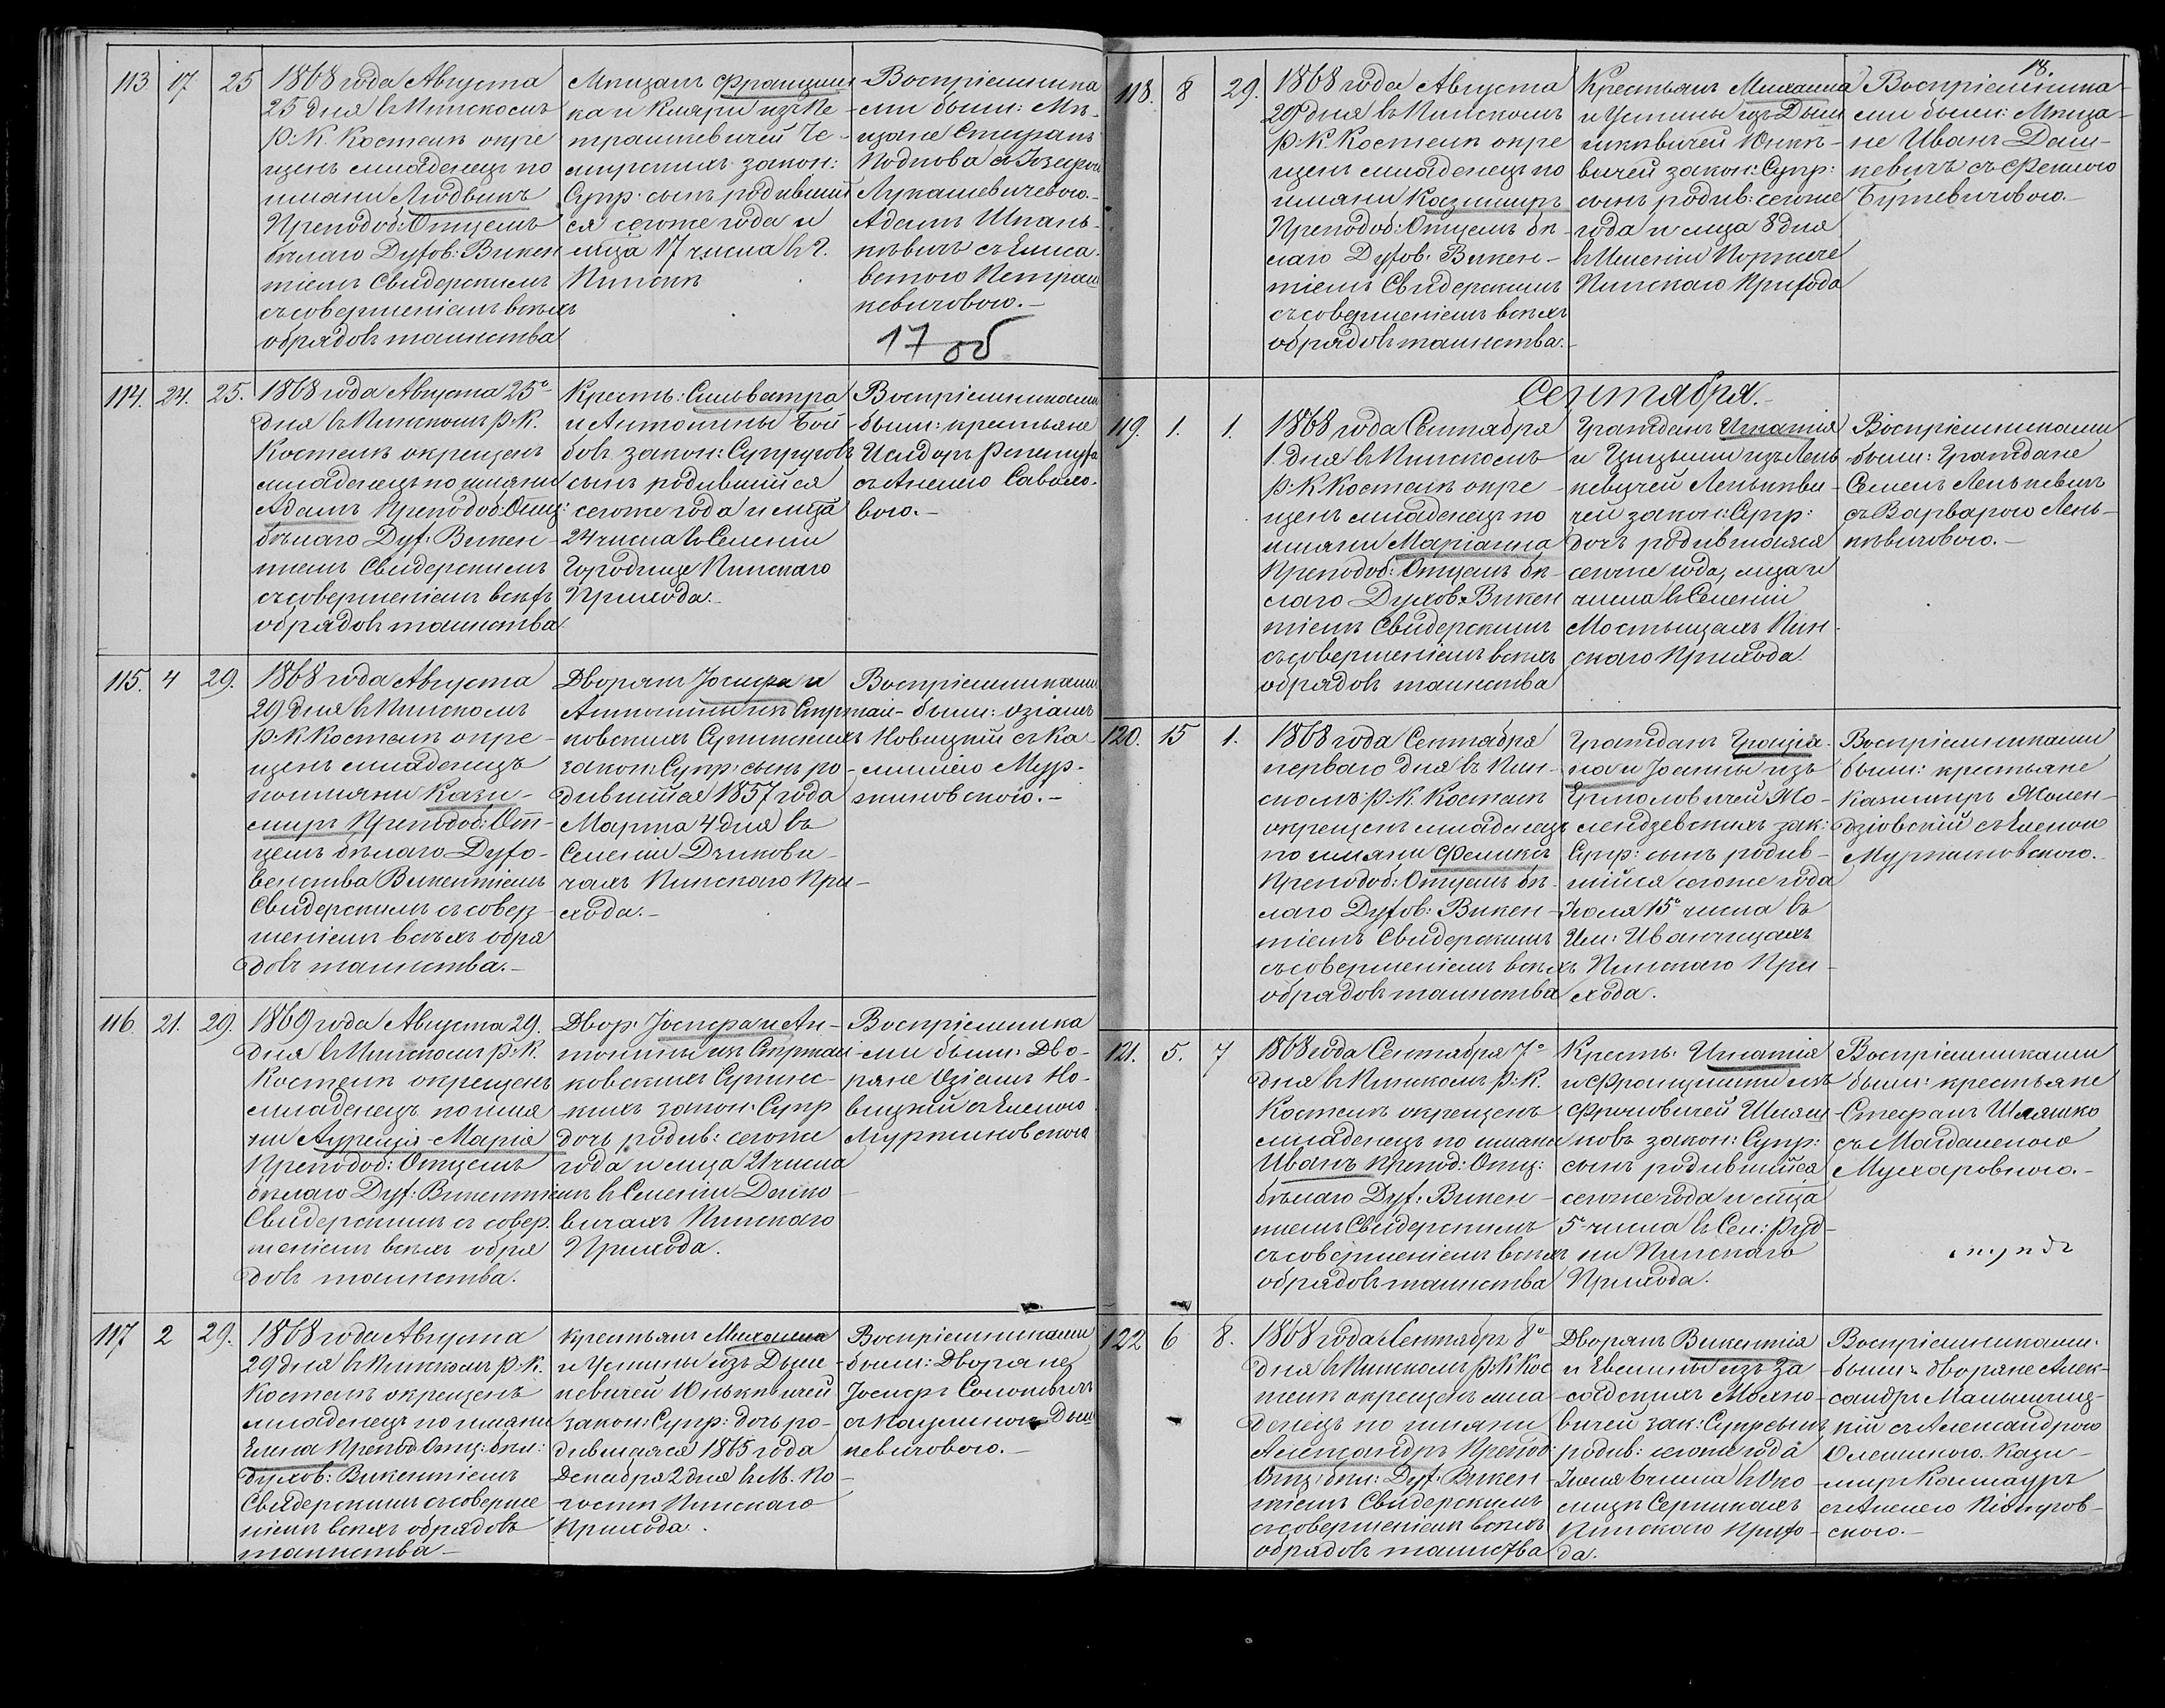 113 17 25 1868 года Августа
25 дня въ Пинскомъ
р: К. Костелѣ окре
щенъ младенецъ по
имяни Людвикъ
Преподоб: Отцемъ
бѣлаго Духов: Викен
тіемъ Свидерскимъ
съ совершеніемъ всѣхъ
обрядовъ таинства
Мѣщанъ Францишка
ка и Кляри изъ Пе
трашкевичей Че-
мирскихъ закон:
Супр: сынъ родивший
ся сегоже года и
мца 17 числа в г.
Пинскѣ
Воспріемника
ми были: Мѣ-
щане Стефанъ
Лукашевичевою.-
Адамъ Шпань-
кѣвичъ съ Елиса-
ветою Петраш
кевичовою.-
17 об
114. 24. 25. 1868 года Августа 25го
дня въ Пинскомъ р: К.
Костелѣ окрещенъ
младенецъ по имяни
Адамъ Преподоб: Отц:
бѣлаго Дух: Викен-
тіемъ Свидерскимъ
съ совершеніемъ всѣхъ
обрядовъ таинства
Кресть: Сильвестра
и Антонины Бой
бовъ закон: Супруговъ
сынъ родившийся
сегоже года и мца
24 числа въ Селеніи
Городище Пинскаго
Прихода.-
Воспріемниками
были: крестьяне
Исидоръ
съ Анелею
вою.-
115. 4 29. 1868 года Августа
29 дня въ Пинскомъ
р: К Костелѣ окре-
щенъ младенецъ
по имяни Кази-
миръ Преподоб: От-
цемъ бѣлаго Духо-
венства Викентіемъ
Свидерскимъ съ совер-
шеніемъ всѣхъ обря
довъ таинства.-
Дворянъ Іосифа и
Антонины изъ Стржал-
ковскихъ Сулинскихъ
закон: Супр: сынъ ро-
дившійся 1857 года
Марта 4 дня въ
Селеніи
чахъ Пинскаго При-
хода.-
Воспріемниками
были: Юзіамъ
Новицкій съ Ка-
милліею Мур-
зиновскою.-
116. 21. 29. 1869 года Августа 29.
дня въ Пинскомъ р: К.
Костелѣ окрещенъ
младенецъ по имя
ни Ауреція-Марія
Преподоб: Отцемъ
бѣлаго Дух: Викентіемъ
Свидерскимъ съ совер-
шеніемъ всѣхъ обря
довъ таинства.
Двор: Іосифа и Ан-
тонины изъ Стржал
ковскихъ Сулинс-
кихъ закон: Супр
дочь родив: сегоже
года и мца 21 числа
въ Селеніи
вичахъ Пинскаго
Прихода.
Воспріемника
ми были: Дво-
ряне Юзіамъ Но-
вицкій съ Еленою
117 2 29. 1868 года Августа
29 дня въ Пинскомъ р: К.
Костелѣ окрещенъ
младенецъ по имяни
Елена Препод: Отц: бѣл:
Духов: Викентіемъ
Свидерскимъ съ соверше
ніемъ всѣхъ обрядовъ
таинства-
Крестьянъ Михаила
и Устины изъ Дыш-
кевичей Юнькѣвичей
закон: Супр: дочь ро-
дившаяся 1865 года
Декабря 2 дня в М. По-
гости Пинскаго
Прихода.
Воспріемниками
были: Дворянец
Іосифъ
съ Каулиною Дыш
кевичовою.-
18.
118. 8 29. 1868 года Августа
29 дня въ Пинскомъ
р: К. Костелѣ окре
щенъ младенецъ по
имяни Казимиръ
Преподоб: Отцемъ бѣ-
лаго Духов: Викен-
тіемъ Свидерскимъ
съ совершеніемъ всѣхъ
обрядовъ таинства.-
Крестьянъ Михаила
и Устины изъ Дыш
кѣвичей Юнкѣ-
вичей закон: Супр:
сынъ родив: сегоже
года и мца 8 дня
въ Имѣніи Порѣчье
Пинскаго Прихода
Воспріемника-
ми были: Мѣща-
не Иванъ Даш-
кевичъ съ Феклою
Буткевичовою.-
Сентября.-
119. 1. 1. 1868 года Сентября
1. дня въ Пинскомъ
р: К. Костелѣ окре-
щенъ младенецъ по
имяни Маріанна
Преподоб: Отцемъ бѣ-
лаго Духов: Викен
тіемъ Свидерскимъ
съ совершеніемъ всѣхъ
обрядовъ таинства
Гражданъ Игнатія
и Цецыліи изъ Лень
кевичей Ленькѣви-
чей закон: Супр:
дочь родившаяся
сегоже года, мца и
числа въ Селеніи
Мостыщахъ Пин-
скаго Прихода.
Воспріемниками
были: Граждане
Семенъ Ленькевичъ
съ Варварою Лень-
кѣвичовою.-
120. 15 1. 1868 года Сентября
перваго дня въ Пин-
скомъ р: К. Костелѣ
окрещенъ младенецъ
по имяни Феликсъ
Преподоб: Отцемъ бѣ-
лаго Духов: Викен-
тіемъ Свидерскимъ
съ совершеніемъ всѣхъ
обрядовъ таинства
Гражданъ Граціа-
на и Іоанны изъ
Ермоловичей Мо-
лендзевскихъ зак:
Супр: сынъ родив-
шійся сегоже года
Іюля 15го числа въ
Им: Иванчицахъ
Пинскаго При-
хода.
Воспріемниками
были: крестьяне
Казимиръ Мален-
дзіовскій съ Еленою
121. 5. 7 1868 года Сентября 7го
дня въ Пинскомъ р: К.
Костелѣ окрещенъ
младенецъ по имяни
Иванъ Препод: Отц:
бѣлаго Дух: Викен-
тіемъ Свидерскимъ
съ совершеніемъ всѣхъ
обрядовъ таинства
Кресть: Игнатія
и Францишки изъ
Фроловичей Шляш
ковъ закон: Супр:
сынъ родившійся
сегоже года и мца
5го числа въ Сел: Руд-
ни Пинскаго
Прихода.
Воспріемниками
были: крестьяне
Стефанъ Шляшко
съ Магдаленою
Мухаровною.-
122 6 8. 1868 года Сентября 8го
дня въ Пинскомъ р: К Кос
телѣ окрещенъ мла
денецъ по имяни
Александръ Препод:
Отц: бѣл: Дух: Викен
тіемъ Свидерскимъ
съ совершеніемъ всѣхъ
обрядовъ таинства
Дворянъ Викентія
и Евелины изъ За
садскихъ Махно-
вичей зак: Супр сынъ
родив: сегоже года
Іюля 6 числа въ Око
лицѣ Серникахъ
Пинскаго Прихо-
да.
Воспріемниками.
были: дворяне Алек-
сандръ
кій съ Александрою
Олешиною. Кази-
миръ
съ Анелею Піотров-
скою.-